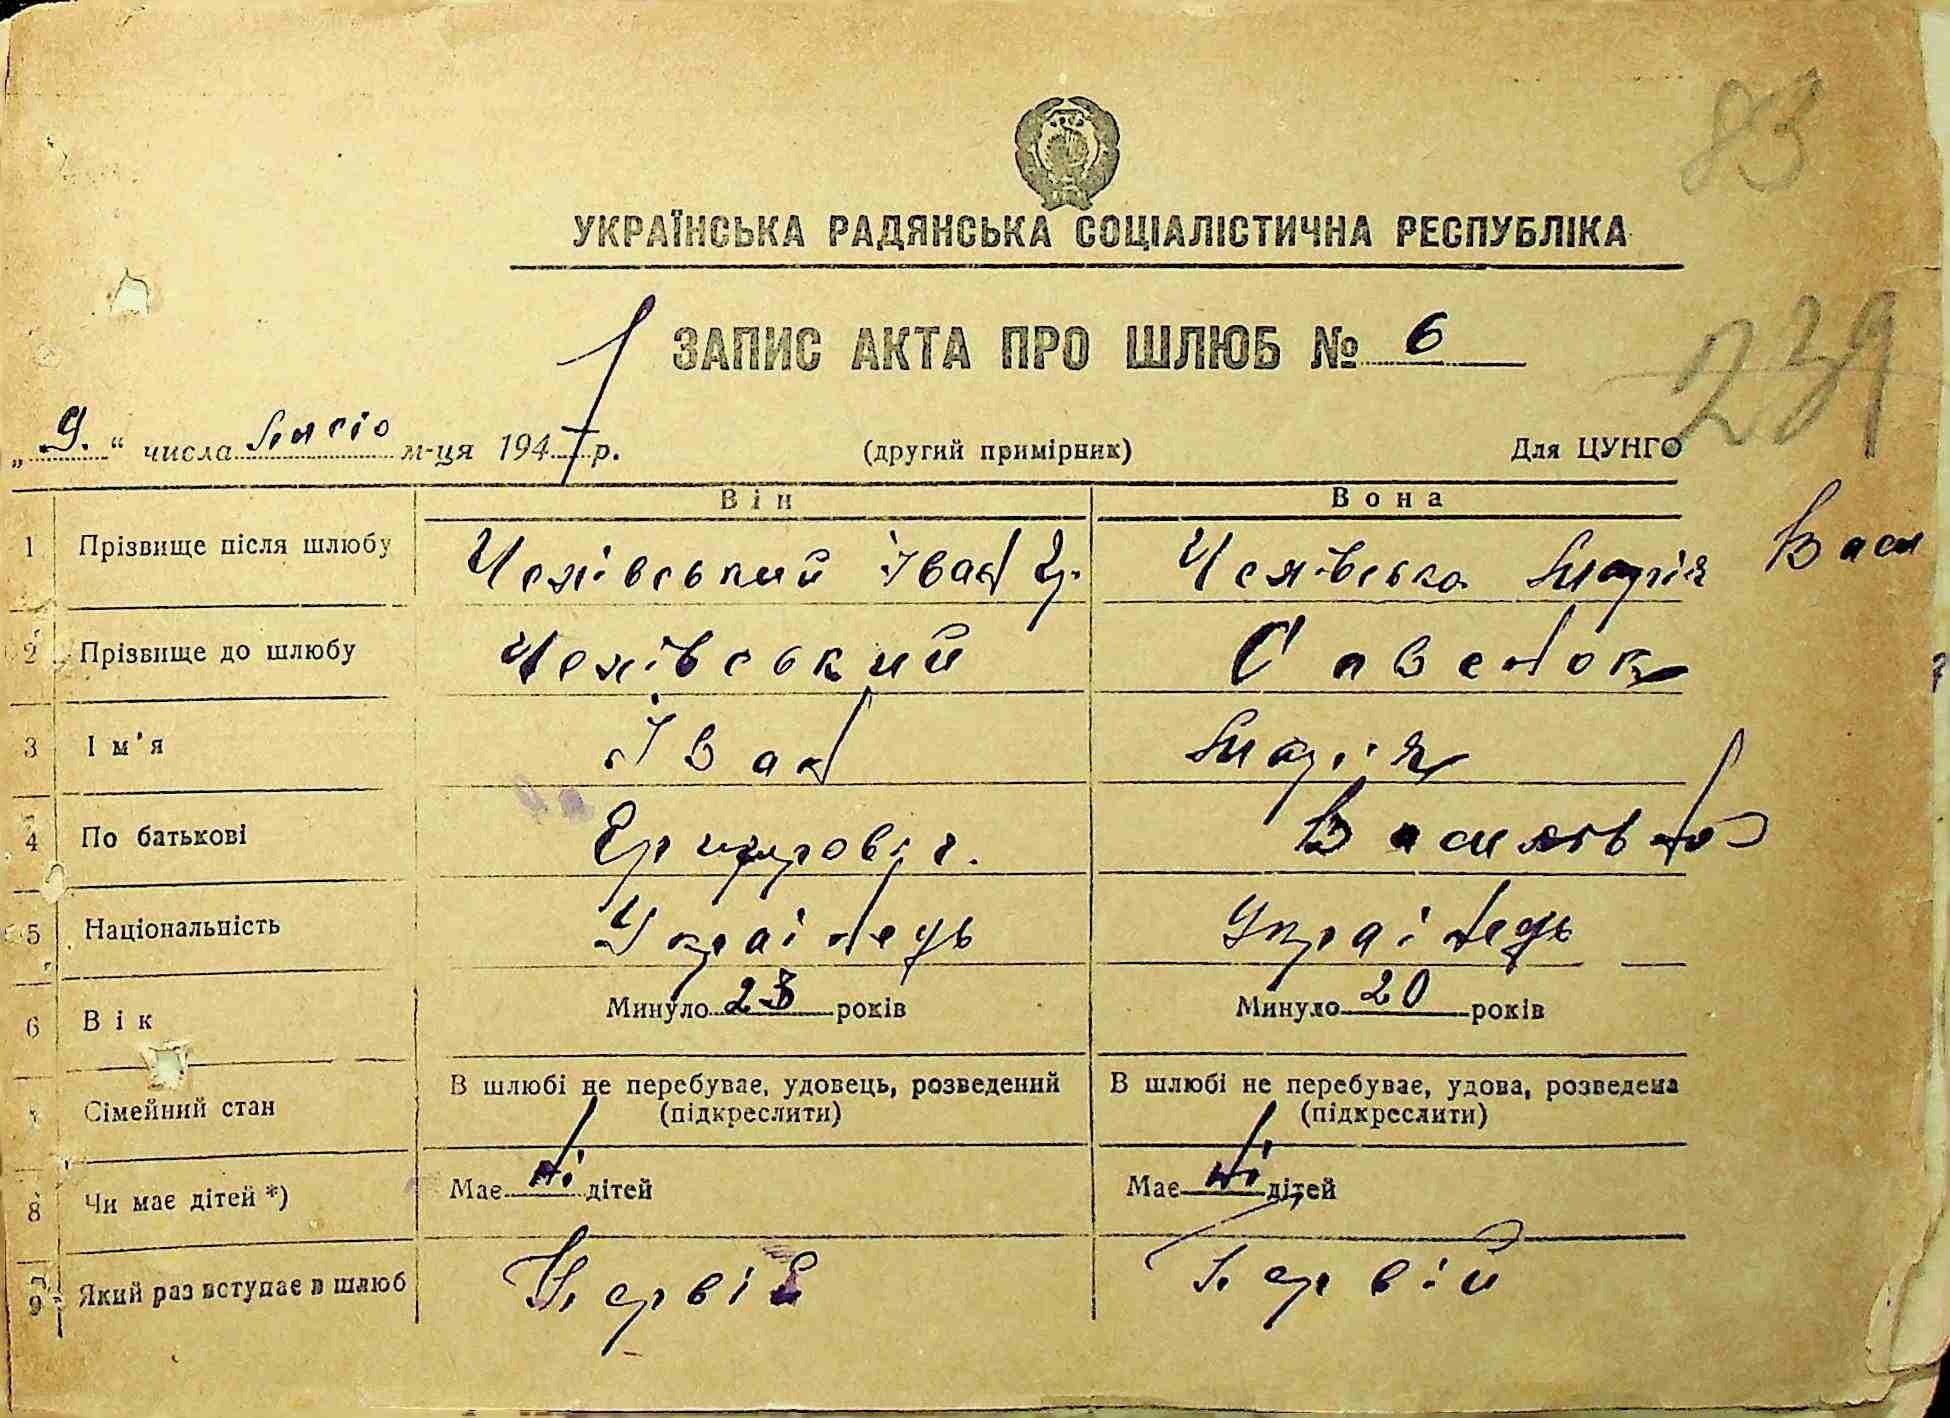 83
УКРАЇНСЬКА РАДЯНСЬКА СОЦІАЛІСТИЧНА РЕСПУБЛІКА
ЗАПИС АКТА ПРО ШЛЮБ № 6
239
„ 9. “ числа м-ця 1947 р. (другий примірник) Для ЦУНГО
Він Вона
1 Прізвище після шлюбу Чехівський Іван Чехівська Марія Васи
2 Прізвище до шлюбу Чехівський Савенок
3 Ім'я Іван Марія
4 По батькові Васильовна
5 Національність Украінець Украінець
6 Вік Минуло 23 років Минуло 20 років
Сімейний стан В шлюбі не перебуває, удовець, розведений В шлюбі не перебуває, удова, розведена
(підкреслити) (підкреслити)
8 Чи має дітей *) Має ні дітей Має ні дітей
9 Який раз вступає в шлюб Первій Первій